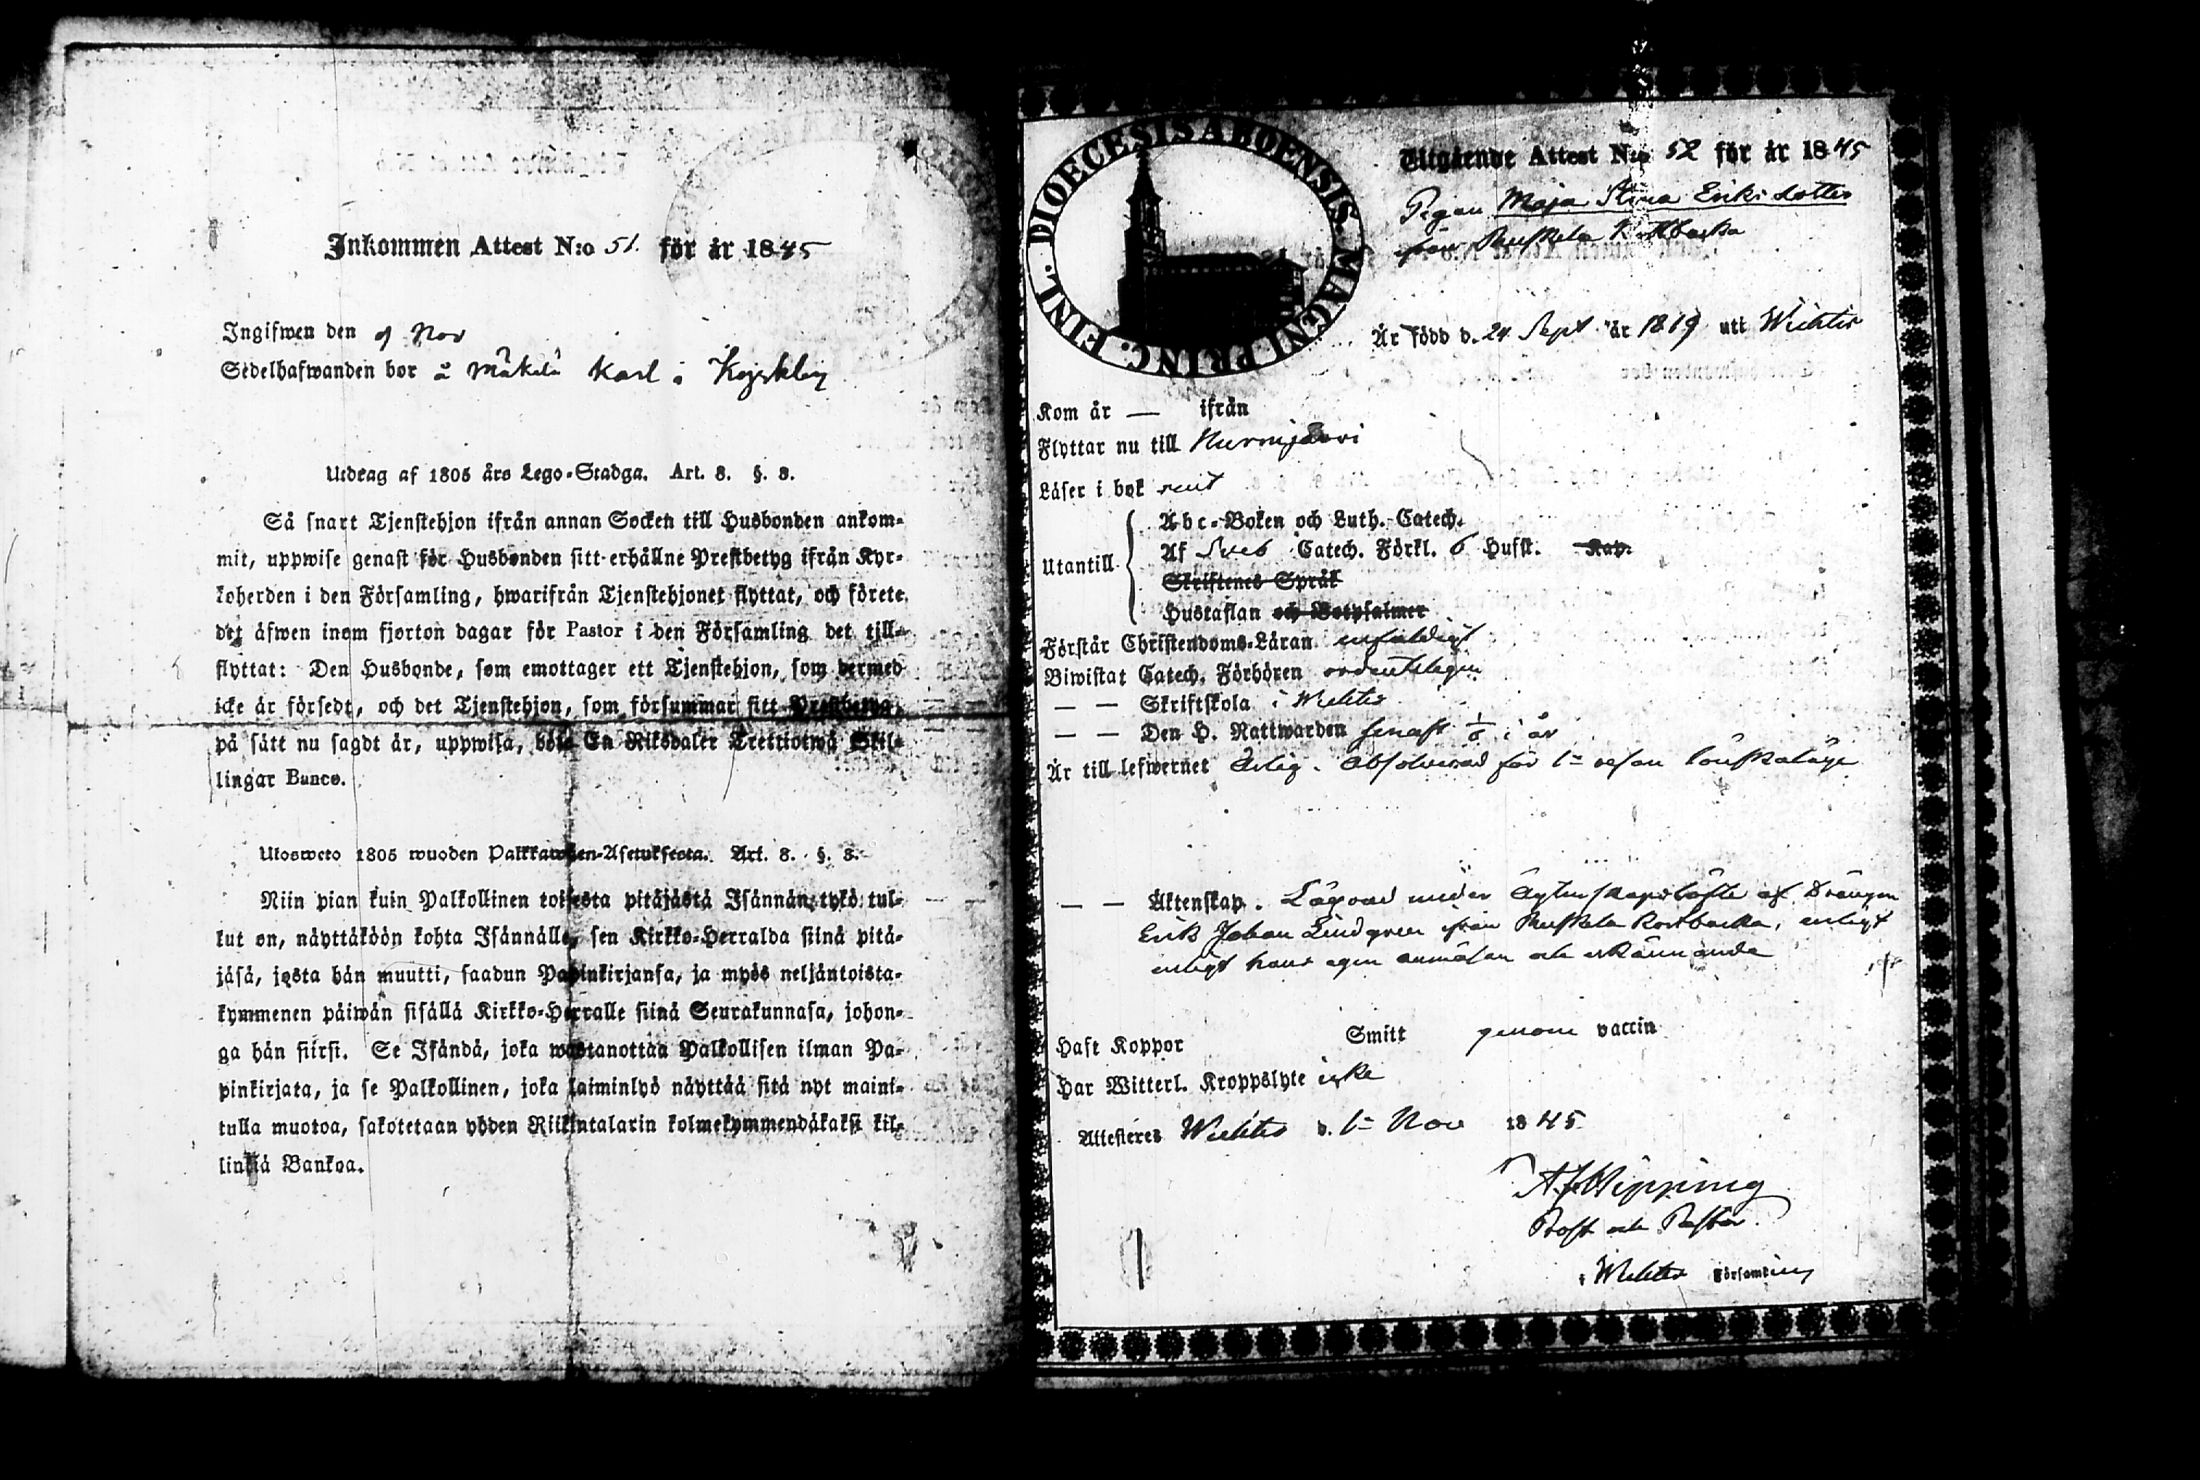 Inkommen Attest N:o 51. för år 1845
Ingifwen den 9 Nov
Sedelhafwanden bor å Mäkelä Karl i
Utdrag af 1805 års Lego-Stadga. Art. 8. §. 8.
Så snart Tjenstehjon ifrån annan Socken till Husbonden ankom-
mit, uppwise genast för Husbonden sitt erhållne Prestbetyg ifrån Kyr-
koherden i den Församling, hwarifrån Tjenstehjonet flyttat, och förete
det äfwen inom fjorton dagar för Pastor i den Församling det till-
flyttat: Den Husbonde, som emottager ett Tjenstehjon, som dermed
icke är försedt, och det Tjenstehjon, som försummar sitt Prestbetyg,
på sätt nu sagdt är, uppwisa, böte En Riksdaler Trettiotwå Skil-
lingar Banco.
Ulosweto 1805 wuoden Palkkawäen-Asetuksesta. Art. 8. §. 8.
Niin pian kuin Palkollinen toisesta pitäjästä Isännän tykö tul-
kut on, näyttäköön kohta Isännälle, sen Kirkko-Herralda siinä pitä-
jäsä, josta hän muutti, saadun Papinkirjansa, ja myös neljäntoista-
kymmenen päiwän sisällä Kirkko-Herralle siinä Seurakunnasa, johon-
ga hän siirsi. Se Isändä, joka wastanottaa Palkollisen ilman Pa-
pinkirjata, ja se Palkollinen, joka laiminlyö näyttää sitä nyt maini-
tulla muotoa, sakotetaan yhden Riikintalarin kolmekymmendäkaksi kil-
linkiä Bankoa.
DIOECESIS ABOENSIS. MAGNI PRINC. FINL.
Utgående Attest N:o 52 för år 1845
Pigan Maja Stina Eriksdotter
från
Är född d. 24 Sept år 1819 uti Wichtis
Kom år — ifrån
Flyttar nu till Nurmijärvi
Läser i bok rent
Utantill
Abc-Boken och Luth. Catech.
Af Sveb Catech. Förkl. 6 Hufst. Kap.
Skriftenes Språk
Hustaflan och Botpsalmer
Förstår Christendoms-Läran enfaldigt
Biwistat Catech. Förhören ordentligen
— — Skriftskola i Wichtis
— — Den H. Nattwarden senast i år
Är till lefwernet Ärlig. Absolverad för 1= resan lönskaläge
— — Äktenskap. Lägrad under ägtenskapslöfte af Drängen
Erik Johan Lindgren från enligt
enligt hans egen anmälan och erkännande
Haft Koppor Smitt genom vaccin
Har Witterl. Kroppslyte icke
Attesteres Wichtis d. 1= Nov 1845
A.J. Hipping
Prost och Pastor
i Wichtis Församling